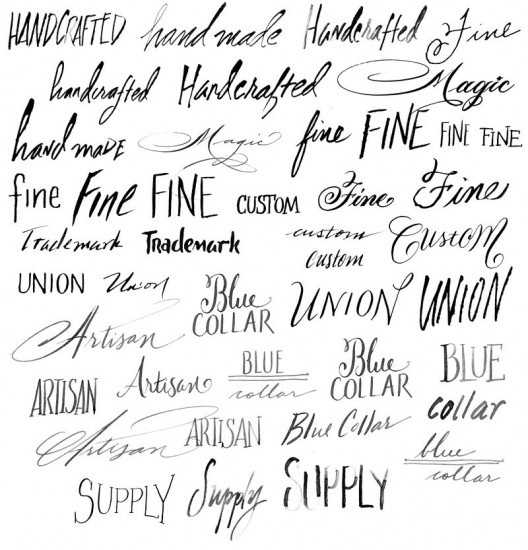 HANDCRAFTED hand made Handcrafted Fine
handcrafted Handcrafted Magic
hand MADE Magic fine FINE FINE FINE
fine Fine FINE CUSTOM Fine Fine
Trademark Trademark custom CUSTOM
custom
UNION Union Blue UNION UNION
COLLAR
Artisan
ARTISAN Artisan BLUE Blue BLUE
collar COLLAR collar
Artisan ARTISAN Blue Collar blue
collar
SUPPLY Supply SUPPLY